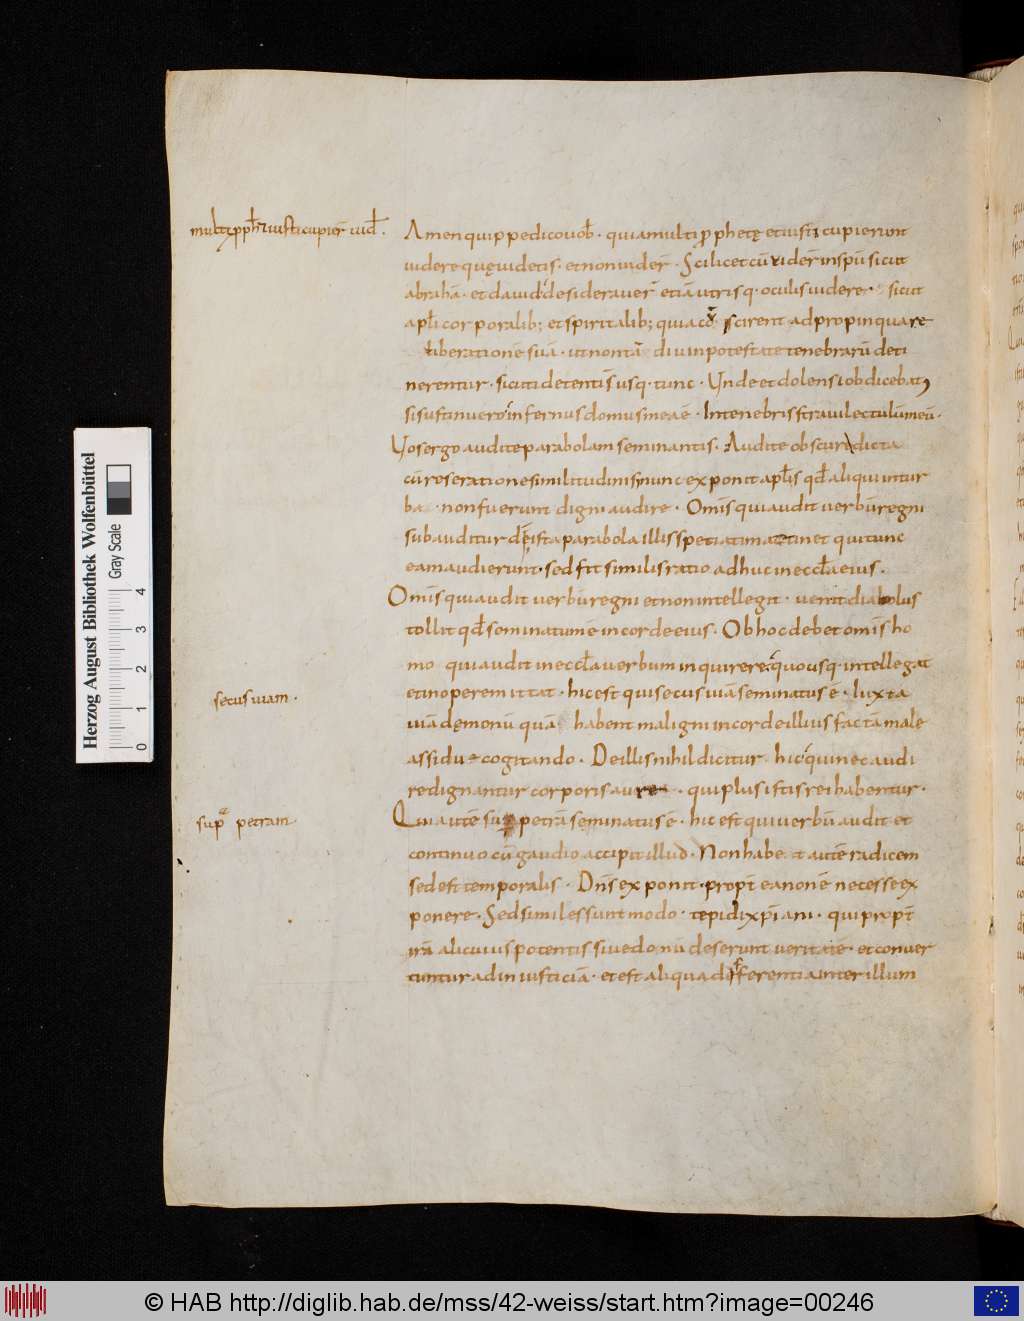 multi pph& iusti cupier uid.
Amen quippe dico uob. quia multi pphetę et iusti cupierunt
uidere quę uidetis. et non uider. Scilicet cū uider in spū sicut
abrahā. et dauid desiderauer etiā utrisq. oculis uidere sicut
apli corporalib; et spiritalib; quia scirent adpropinquare
liberationē suā. ut non tā diu in potestate tenebrarū deti
nerentur. sicuti detenti s usq. tunc. Unde et dolens iob dicebat
si sustinuero infernus domus mea ē. In tenebris straui lectulū meū.
Uos ergo audite parabolam seminantis. Audite obscura dicta
cū reseratione similitudinis nunc exponit aplis qd aliqui in tur
ba. non fuerunt digni audire. Omis qui audit uerbū regni
subauditur de ista parabola illis spetiatim attinet qui tunc
eam audierunt. sed fit similis ratio adhuc in eccła eius.
Omis qui audit uerbū regni et non intellegit. uenit diabolus
tollit qd seminatum ē in corde eius. Ob hoc debet omis ho
mo qui audit in eccła uerbum inquirere quousq. intellegat
et in operem ittat. hic est qui secus uiā seminatus ē. Iuxta
secus uiam.
uiā dęmonū quā habent maligni in corde illius factā male
assidue cogitando. De illis nihil dicitur hic qui nec audi
re dignantur corporis aure. qui plus istis rei habentur.
sup petram.
Qui autē sup petrā seminatus ē. hic est qui uerbū audit et
continuo cū gaudio accipit illud. Non habet autē radicem
sed est temporalis. Dns exponit. propt ea non ē necesse ex
ponere. Sed similes sunt modo. tepidi xpiani. qui propt
irā alicuius potentis siue donū deserunt ueritatē. et conuer
tuntur ad iniusticiā. et est aliqua differentia inter illum
Herzog August Bibliothek Wolfenbüttel
Gray Scale
0 1 2 3 4
© HAB http://diglib.hab.de/mss/42-weiss/start.htm?image=00246